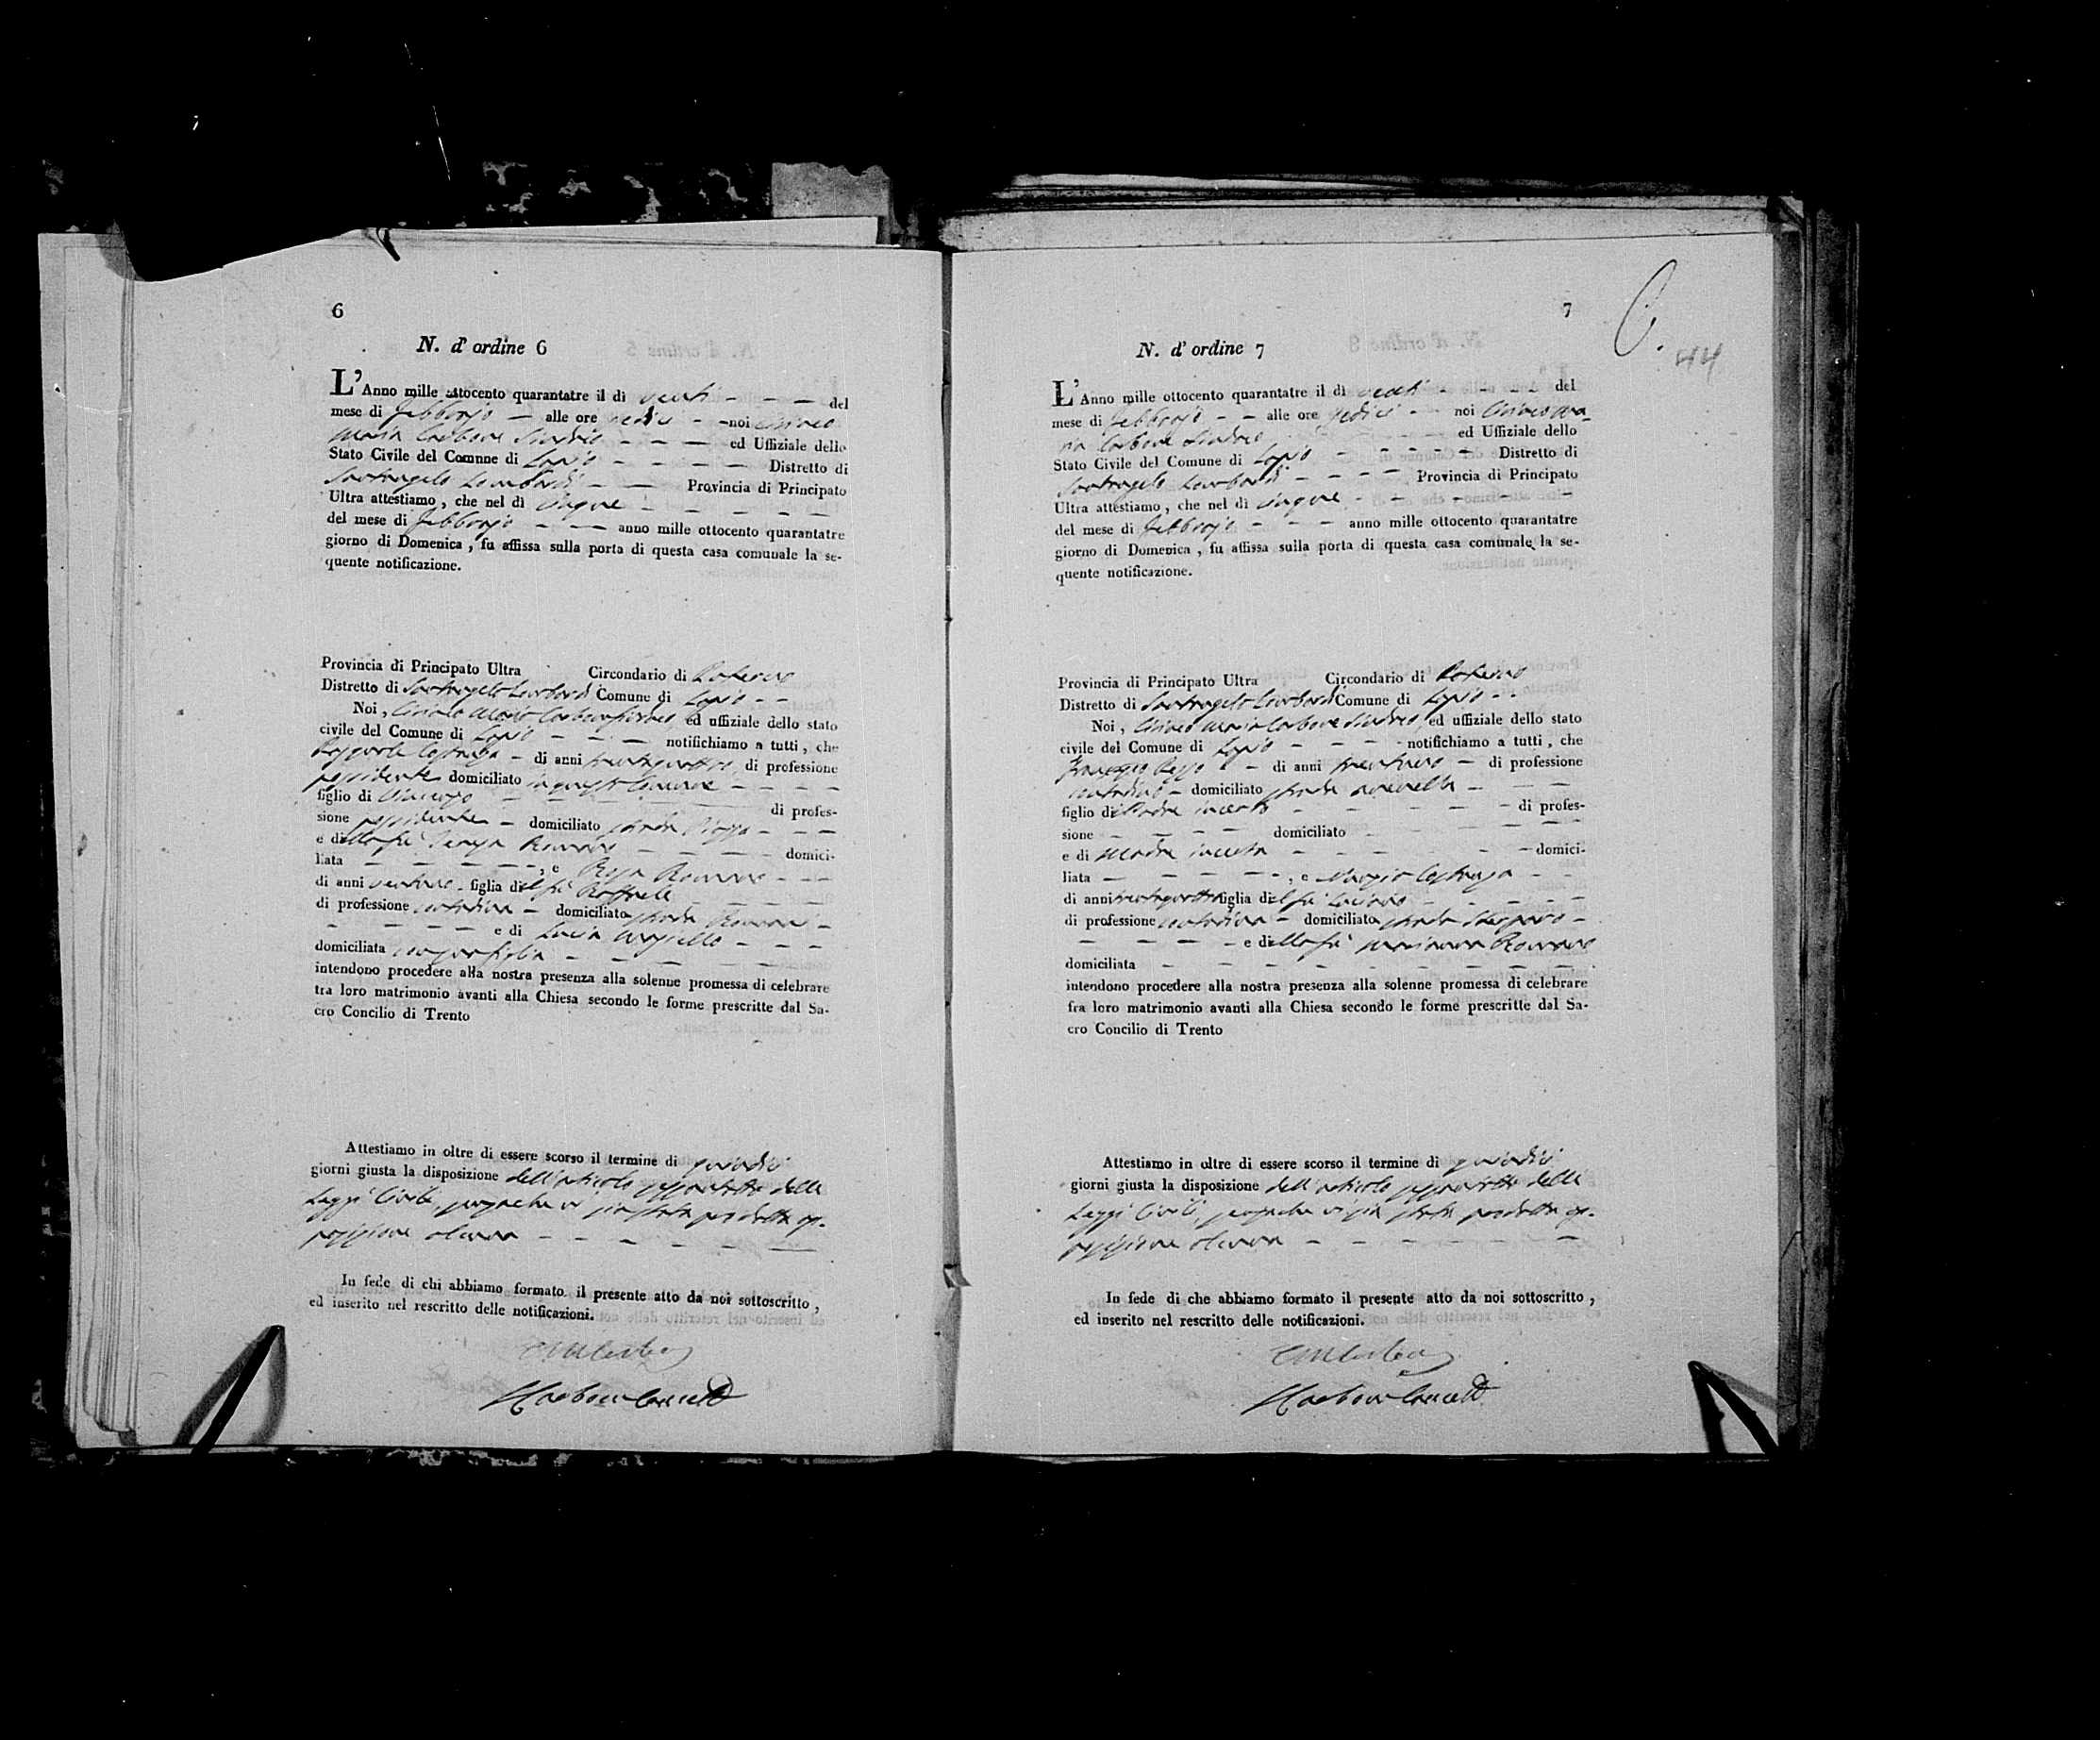 6
N. d' ordine 6
L'Anno mille ottocento quarantatre il dì venti - - - del
mese di Febbrajo - alle ore sedici - - noi Ciriaco
Maria Carbone Sindaco - - - ed Uffiziale dello
Stato Civile del Comune di Lapio - - - - Distretto di
Santangelo Lombardi - - Provincia di Principato
Ultra attestiamo, che nel dì cinque - - - - -
del mese di Febbrajo - - anno mille ottocento quarantatre
giorno di Domenica, fu affissa sulla porta di questa casa comunale la se-
quente notificazione.
Provincia di Principato Ultra Circondario di Paterno
Distretto di Santangelo Lombardi Comune di Lapio - -
Noi, Ciriaco Maria Carbone Sindaco ed uffiziale dello stato
civile del Comune di Lapio - - - notifichiamo a tutti, che
- di anni trentaquattro di professione
possidente domiciliato in questo Comune - - - -
figlio di - - - di profes-
sione possidente - domiciliato strada Piazza - - -
e di della fu Teresa Romano - - - - domici-
liata - - - - -, e Rosa Romano - - -
di anni ventuno - figlia di del fu Raffaele - - - -
di professione contadina - domiciliato strada Romani -
- - - - e di Lucia - - -
domiciliata con sua figlia - - - - -
intendono procedere alla nostra presenza alla solenne promessa di celebrare
tra loro matrimonio avanti alla Chiesa secondo le forme prescritte dal Sa-
cro Concilio di Trento
Attestiamo in oltre di essere scorso il termine di quindici
giorni giusta la disposizione dell'articolo sessantotto delle
Leggi Civili, senza che vi sia stata prodotta op-
posizione alcuna - - - - - -
In fede di chi abbiamo formato il presente atto da noi sottoscritto,
ed inserito nel rescritto delle notificazioni.
7
N. d' ordine 7
44
L'Anno mille ottocento quarantatre il dì venti - - - - del
mese di Febbrajo - - alle ore sedici - - noi Ciriaco Ma-
ria Carbone Sindaco ed Uffiziale dello
Stato Civile del Comune di Lapio - - - - - Distretto di
Santangelo Lombardi - - - - Provincia di Principato
Ultra attestiamo, che nel dì cinque - - - - -
del mese di Febbrajo - - - anno mille ottocento quarantatre
giorno di Domenica, fu affissa sulla porta di questa casa comunale la se-
quente notificazione.
Provincia di Principato Ultra Circondario di Paterno
Distretto di Santangelo Lombardi Comune di Lapio - -
Noi, Ciriaco Maria Carbone Sindaco ed uffiziale dello stato
civile del Comune di Lapio - - - - notifichiamo a tutti, che
- di anni trentuno - di professione
contadino - domiciliato strada - - -
figlio di Padre incerto - - - - - di profes-
sione - - - - domiciliato - - - -
e di Madre incerta - - - - - domici-
liata - - - - -, e - -
di anni trentaquattro figlia di del fu - - - -
di professione contadina - domiciliato strada -
- - - - e di della fu Marianna Romano
domiciliata - - - - - - - -
intendono procedere alla nostra presenza alla solenne promessa di celebrare
fra loro matrimonio avanti alla Chiesa secondo le forme prescritte dal Sa-
cro Concilio di Trento
Attestiamo in oltre di essere scorso il termine di quindici
giorni giusta la disposizione dell'articolo sessantotto delle
Leggi Civili, senza che vi sia stata prodotta op-
posizione alcuna - - - - - -
In fede di che abbiamo formato il presente atto da noi sottoscritto,
ed inserito nel rescritto delle notificazioni.